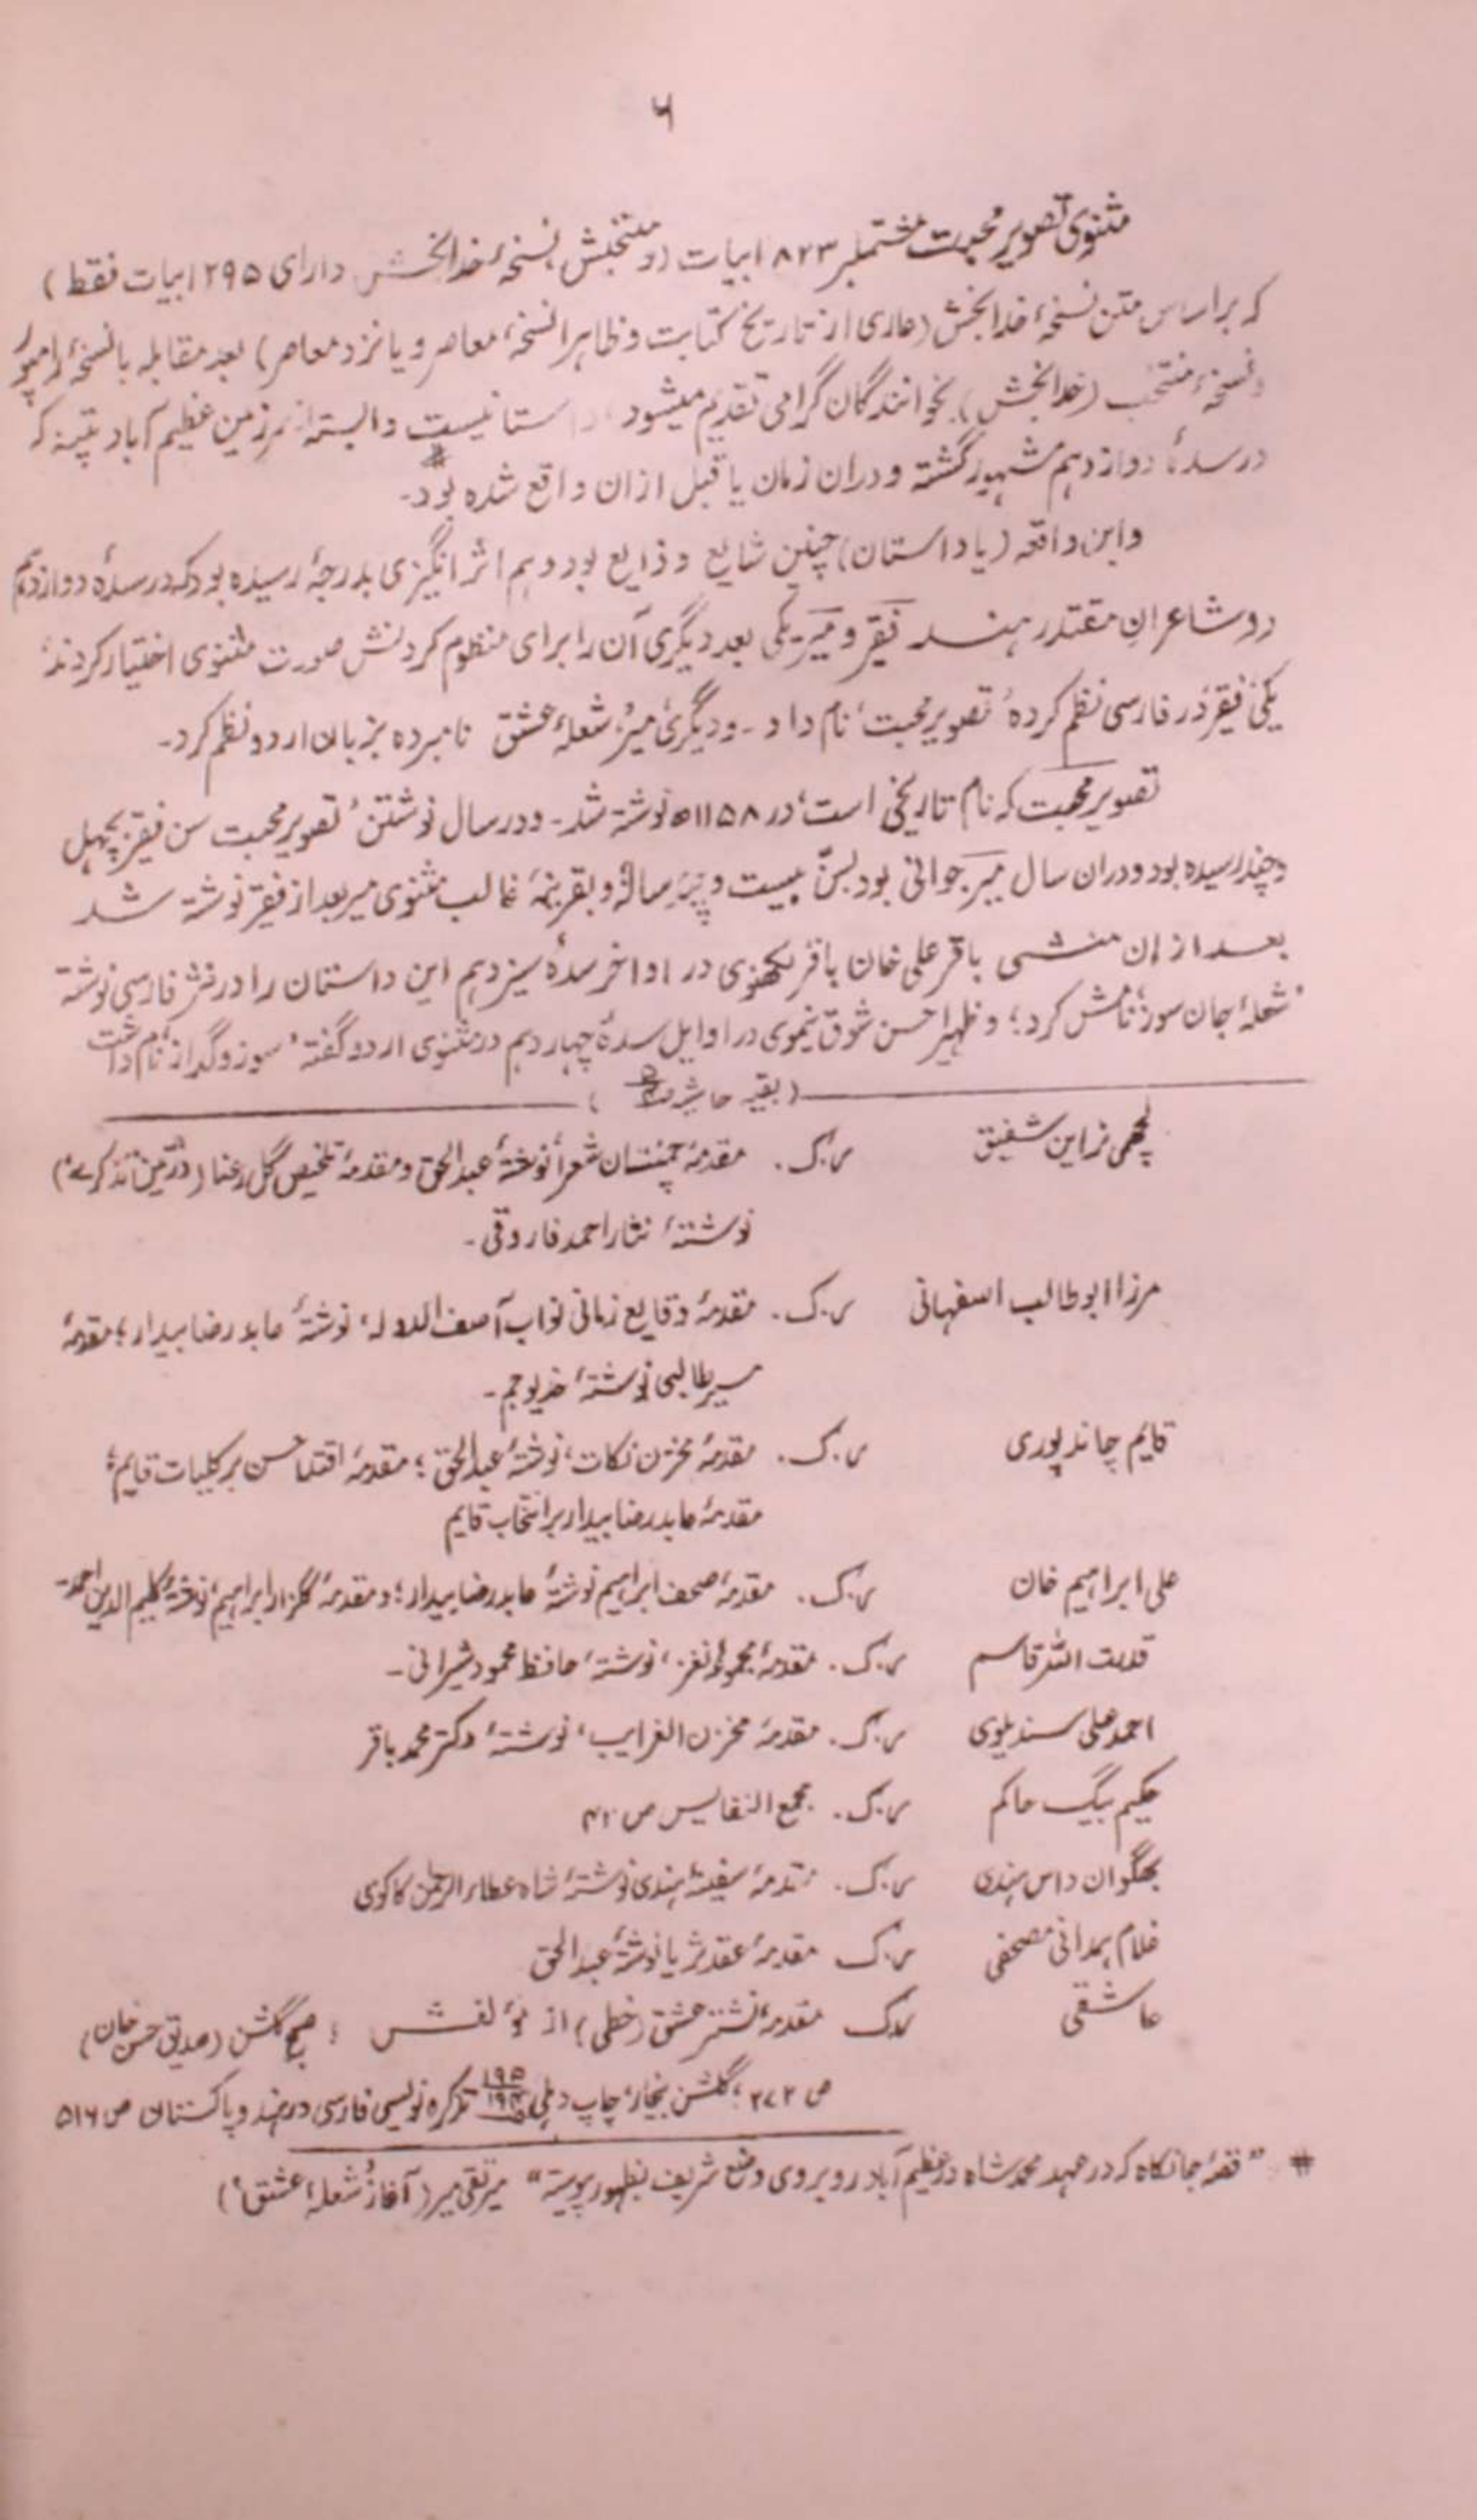 ۶
مثنوی تصویر محبت مشتملبر ۸۲۳ ابیات (و منتخبش نسخۂ خدابخش دارای ۲۹۵ ابیات فقط)
کہ براساس متن نسخۂ خدابخش (عاری از تاریخ کتابت و ظاہرا نسخۂ معاصر و یا نزد معاصر) بعد مقابلہ با نسخۂ رامپور
و نسخۂ منتخب (خدابخش) بخوانندگان گرامی تقدیم میشود، داستانیست وابستہ از سرزمین عظیم آباد پتنہ کہ
درسدۂ دوازدہم مشہور گشتہ و دران زمان یا قبل ازان واقع شدہ بود۔ #
واین واقعہ (یا داستان) چنین شایع و ذایع بود وہم اثر انگیزی بدرجۂ رسیدہ بود کہ درسدۂ دوازدہم
دو شاعرانِ مقتدر ہند فقیر و میر یکی بعد دیگری آن را برای منظوم کردنش صورت مثنوی اختیار کردند
یکی فقیر در فارسی نظم کردہ ’تصویر محبت‘ نام داد۔ و دیگری میر، شعلۂ عشق نامبردہ بزبان اردو نظم کرد۔
تصویر محبت کہ نام تاریخی است، در ۱۱۵۸ھ نوشتہ شد۔ و در سال نوشتن ’تصویر محبت سن فقیر بچہل
و چند رسیدہ بود و دران سال میر جوانی بود بسنّ بیست و سالہ و بقرینۂ غالب مثنوی میر بعد از فقیر نوشتہ شد
بعد از ان منشی باقر علی خان باقر لکھنوی در اواخر سدۂ سیزدہم این داستان را در نثر فارسی نوشتہ
’شعلۂ جان سوز‘ نامش کرد؛ و ظہیر احسن شوق نیموی در اوایل سدۂ چہاردہم در مثنوی اردو گفتہ ’سوز و گداز‘ نام داشت
(بقیہ حاشیہ )
لچھمی نراین شفیق ر.ک. مقدمۂ چمنستان شعرأ نوشتۂ عبدالحق و مقدمۂ تلخیص گل رعنا (در ’تین تذکرے‘)
نوشتۂ نثار احمد فاروقی۔
مرزا ابوطالب اصفہانی ر.ک. مقدمۂ وقایع زمانی نواب آصف الدولہ، نوشتۂ عابد رضا بیدار؛ مقدمۂ
مسیر طالبی نوشتۂ خدیو جم۔
قایم چاندپوری ر.ک. مقدمۂ مخزن نکات، نوشتۂ عبدالحق؛ مقدمۂ اقتدا حسن بر کلیات قایم؛
مقدمۂ عابد رضا بیدار بر انتخاب قایم
علی ابراہیم خان ر.ک. مقدمۂ صحف ابراہیم نوشتۂ عابد رضا بیدار؛ و مقدمۂ گلزار ابراہیم، نوشتۂ کلیم الدین احمد۔
قدرت اللہ قاسم ر.ک. مقدمۂ مجموعۂ نغز، نوشتۂ حافظ محمود شیرانی۔
احمد علی سندیلوی ر.ک. مقدمۂ مخزن الغرایب، نوشتۂ دکتر محمد باقر
حکیم بیگ حاکم ر.ک. مجمع النفایس ص
بھگوان داس ہندی ر.ک. مقدمۂ سفینۂ ہندی نوشتۂ شاہ عطاء الرحمٰن کاکوی
غلام ہمدانی مصحفی ر.ک مقدمۂ عقد ثریا نوشتۂ عبدالحق
عاشقی ر.ک مقدمۂ نشتر عشق (خطی) از مؤلفش ؛ صبح گلشن (صدیق حسن خان)
ص ۲۷۲؛ گلشن بیخار، چاپ دہلی تذکرہ نویسی فارسی در ہند و پاکستان ص ۵۱۶
# ”قصۂ جانکاہ کہ در عہد محمد شاہ در عظیم آباد روبروی وضع شریف بظہور پیوستہ“ میر تقی میر (آغاز ’شعلۂ عشق‘)